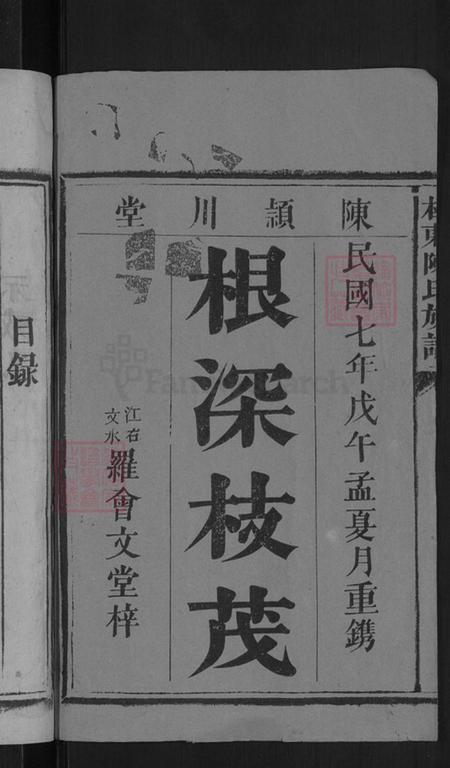 陳潁川堂
民國七年戊午孟夏月重鐫
根深枝茂
江右
文水
羅會文堂梓
東陳氏族譜
目録